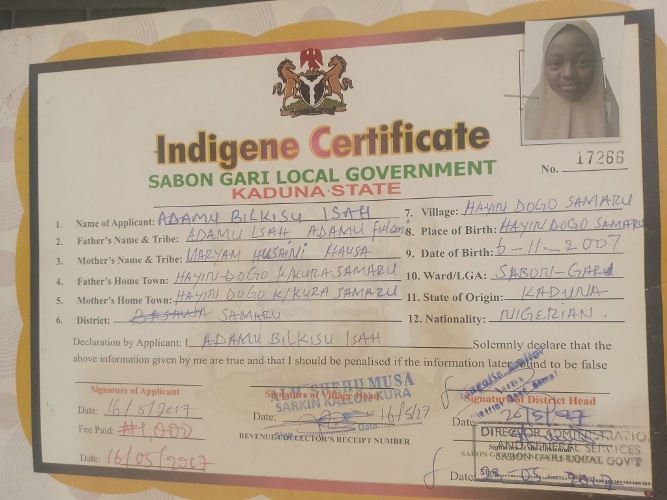 Indigene Certificate
SABON GARI LOCAL GOVERNMENT
KADUNA STATE
No. 17266
1. Name of Applicant: ADAMU BILKISU ISAH
2. Father's Name & Tribe: ADAMU ISAH ADAMU fulani
3. Mother's Name & Tribe: MARYAM HUSAINI HAUSA
4. Father's Home Town: HAYIN-DOGO K/KURA SAMARU
5. Mother's Home Town: HAYIN DOGO K/KURA SAMARU
6. District: BASAWA SAMARU
7. Village: HAYIN DOGO SAMARU
8. Place of Birth: HAYIN DOGO SAMARU
9. Date of Birth: 6-11-2007
10. Ward/LGA: SABON-GARI
11. State of Origin: KADUNA
12. Nationality: NIGERIAN.
Declaration by Applicant: I ADAMU BILKISU ISAH Solemnly declare that the
above information given by me are true and that I should be penalised if the information later found to be false
Signature of Applicant
Date: 16/5/2017
Fee Paid: ₦1,000
Date: 16/05/2017
Signature of Village Head
SHEHU MUSA
SARKIN KALLON KURA
Date: 16/5/17
Date:
REVENUE COLLECTOR'S RECEIPT NUMBER
Signature of District Head
Date:
DIRECTOR ADMINISTRATION
AND GENERAL SERVICES
SABON GARI LOCAL GOV'T
Sign
Date: